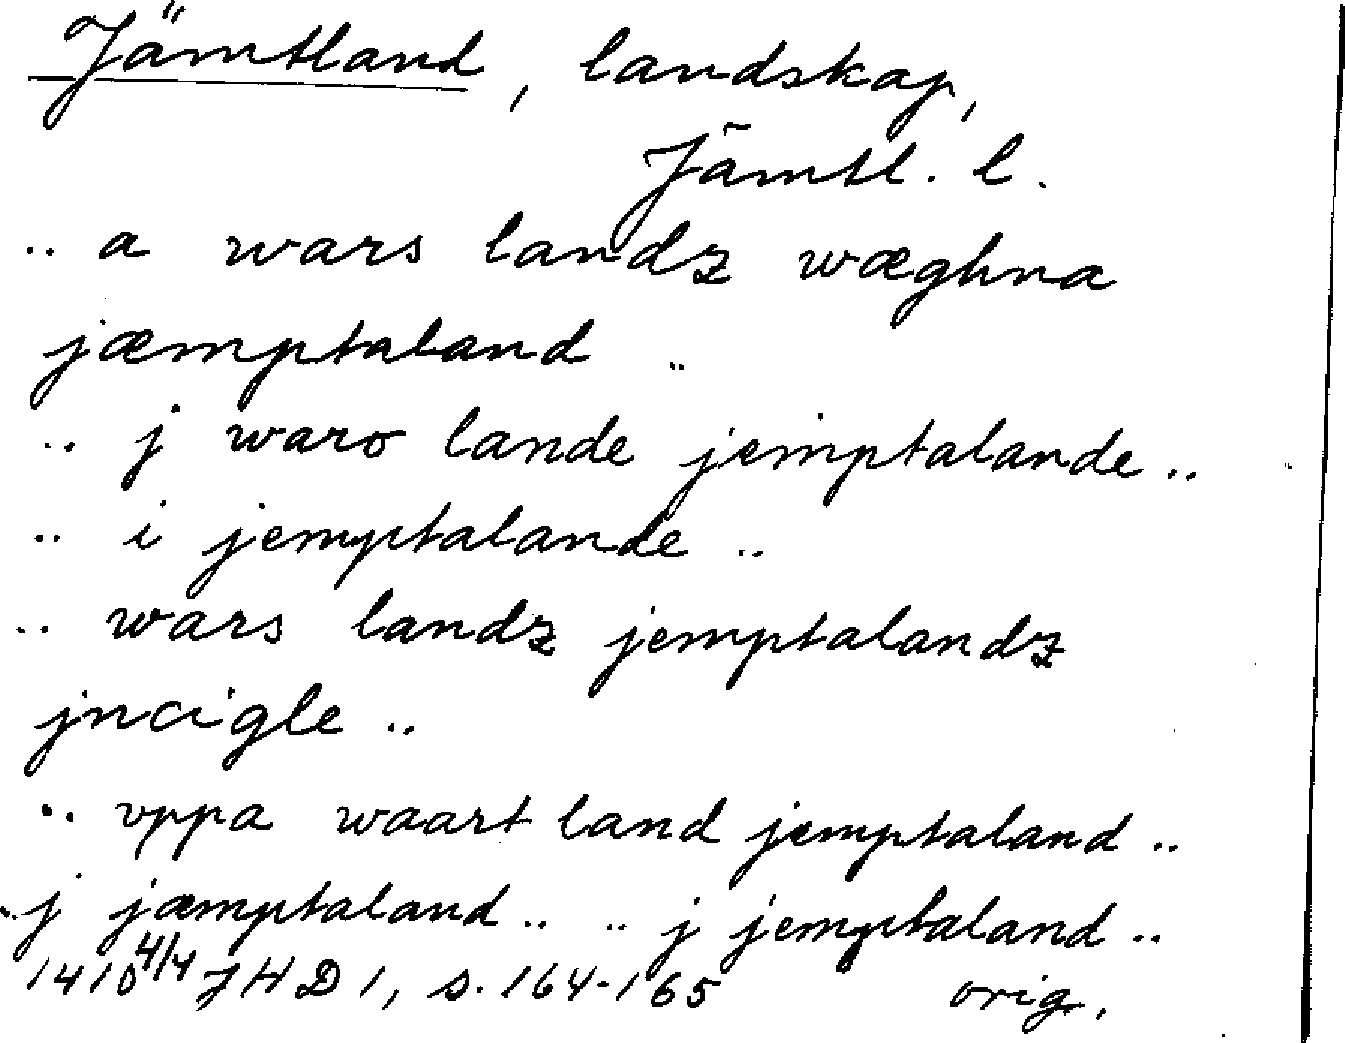 Jämtland, landskap,
Jämtl. l.
.. a wars landz wæghna
jæmptaland ..
.. j waro lande jemptalande ..
.. i jemptalande ..
.. wars landz jemptalandz
jncigle ..
.. vppa waart land jemptaland ..
.. j jæmptaland .. .. j jemptaland ..
1410 4/4 JHD 1, s. 164-165 orig.